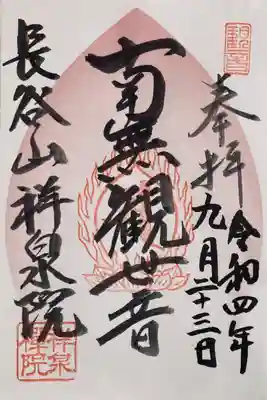 奉拝
令和四年
九月二十三日
南無観世音
長谷山祥泉院